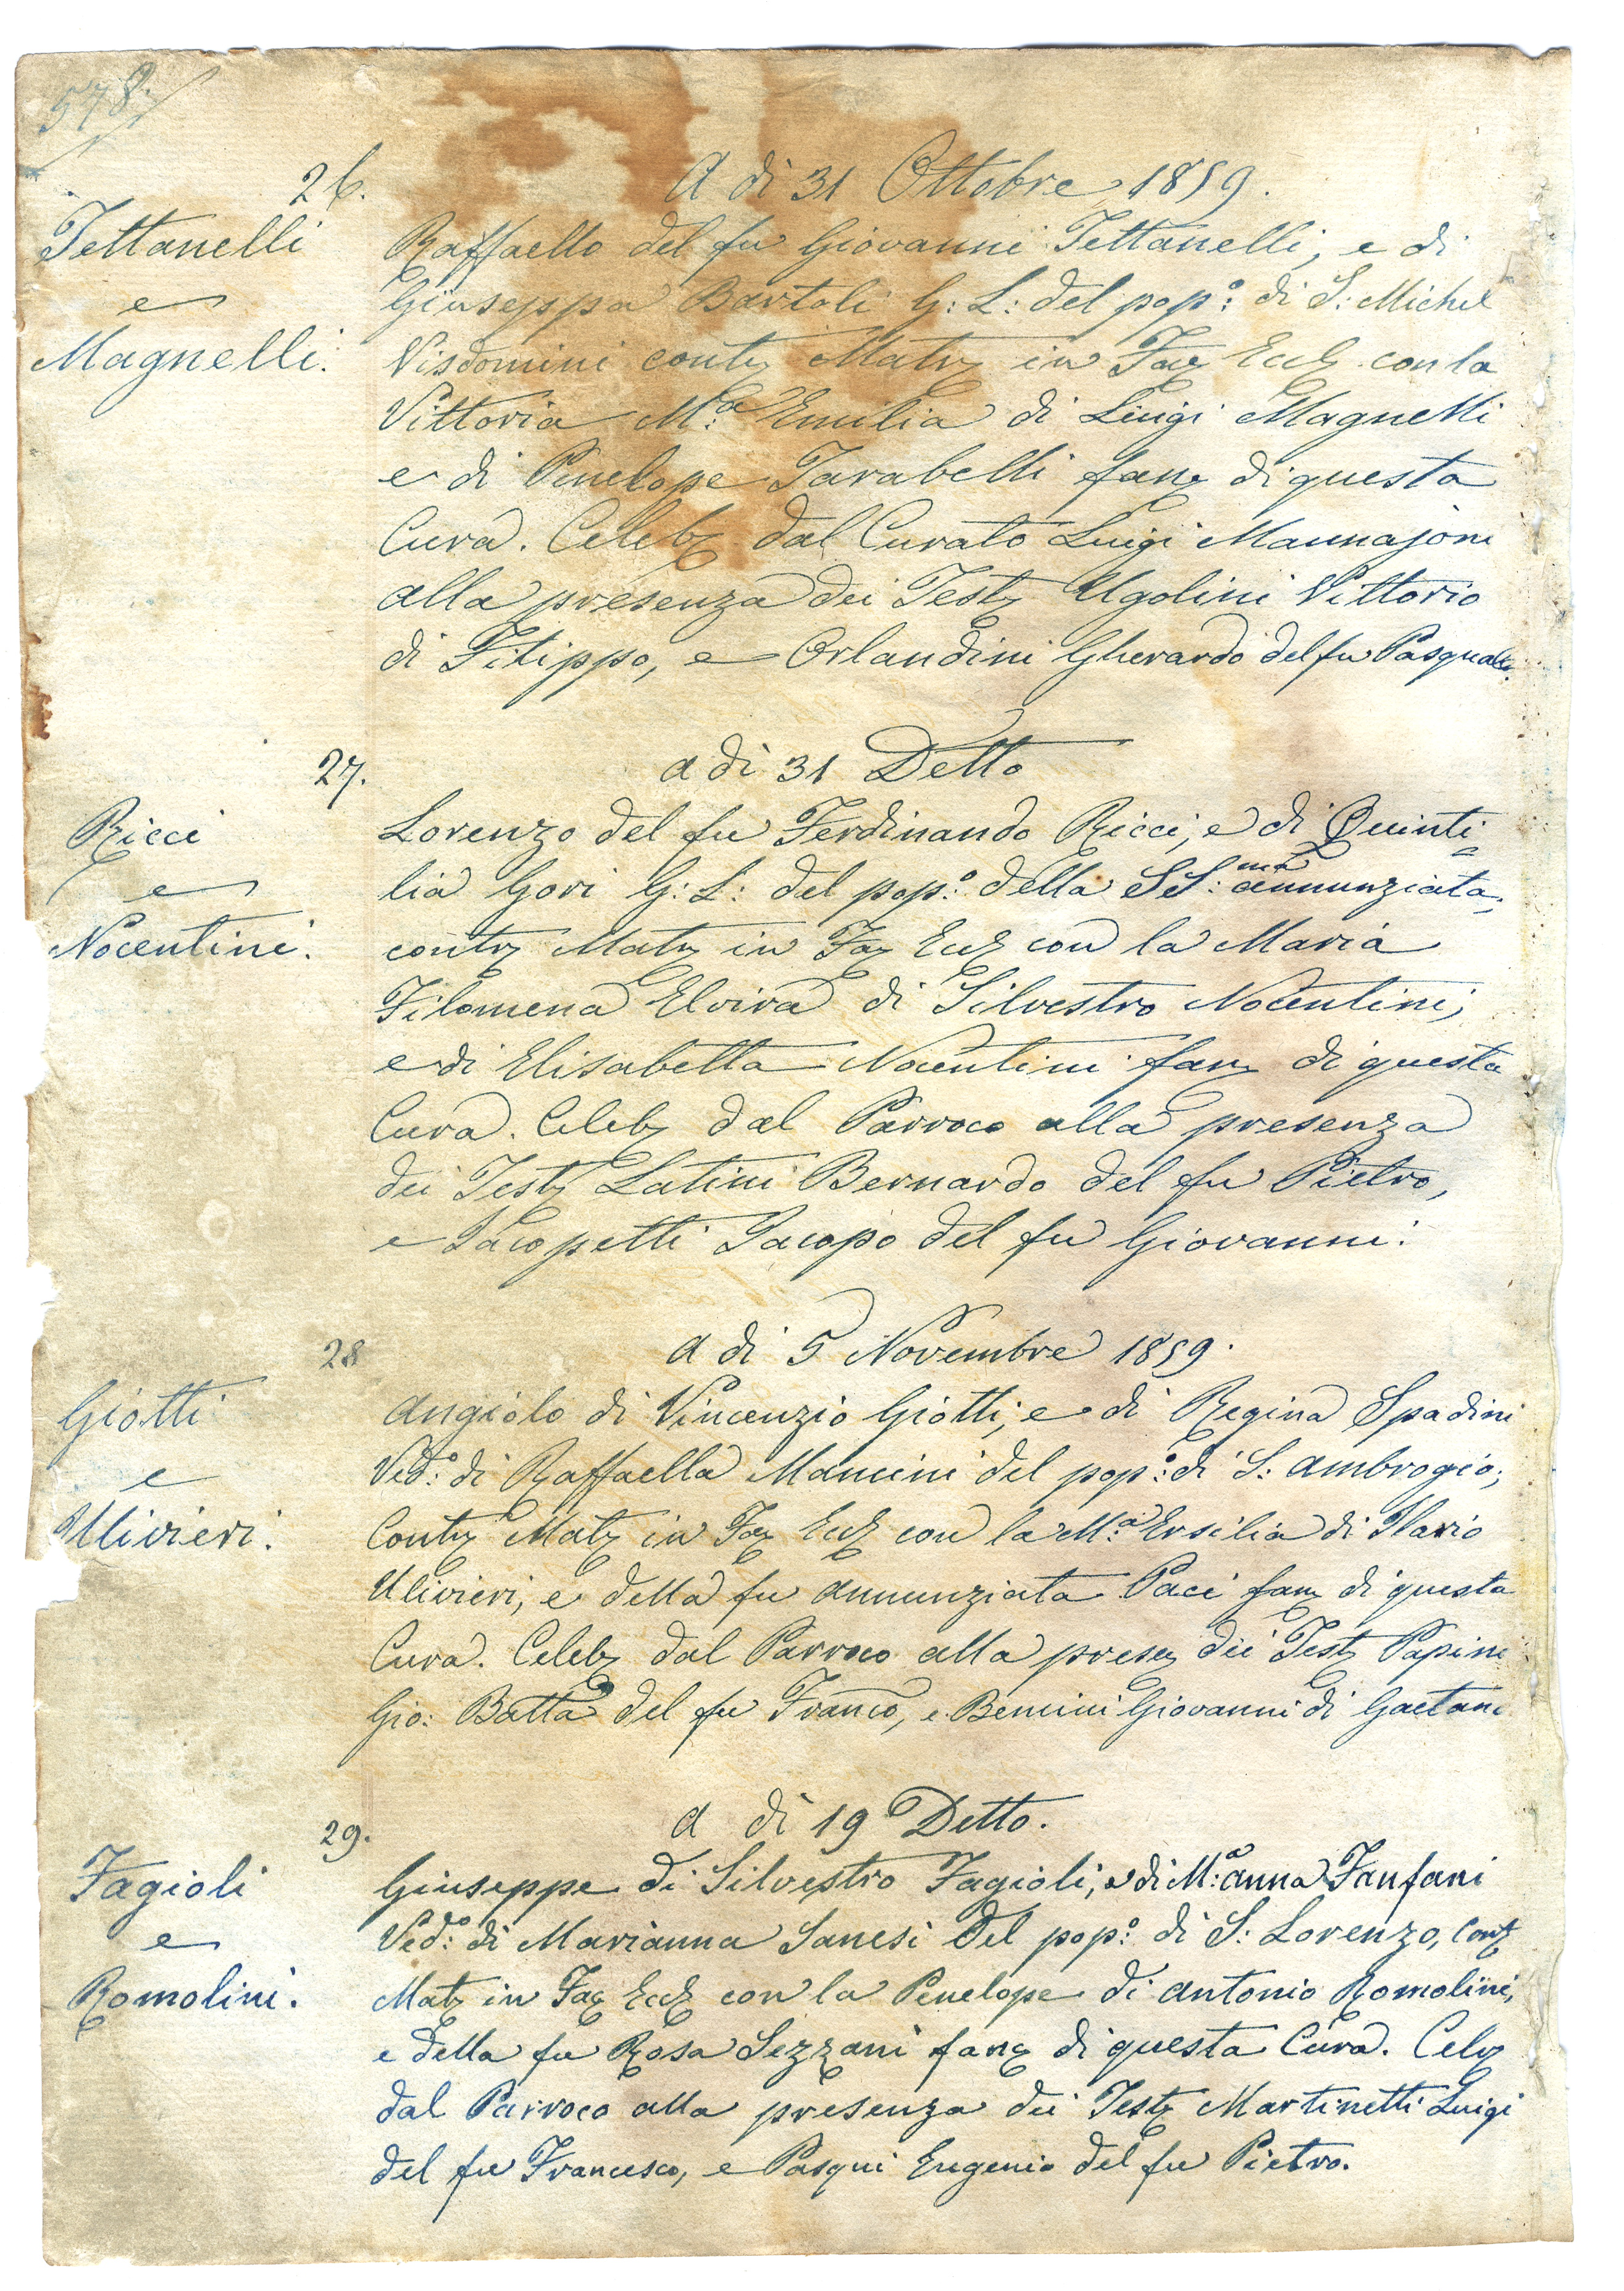 578.
26.
A dì 31 Ottobre 1859.
Tettanelli
e
Magnelli.
Raffaello del fu Giovanni Tettanelli, e di
Giuseppa Bartoli G: L: del pop:º di S: Michel
Visdomini contz Matz in Faz Eccz con la
Vittoria M.ª Emilia di Luigi Magnelli
e di Penelope Tarabelli fanz di questa
Cura. Celebz dal Curato Luigi Mannajoni
alla presenza dei Testz Ugolini Vittorio
di Filippo, e Orlandini Gherardo del fu Pasquale.
27.
a dì 31 Detto
Ricci
e
Nocentini.
Lorenzo del fu Ferdinando Ricci, e di Quinti=
lia Gori G: L: del pop:º della SS:ma annunziata,
contz Matz in Faz Eccz con la Maria
Filomena Elvira di Silvestro Nocentini,
e di Elisabetta Nocentini fanz di questa
Cura. Celebz dal Parroco alla presenza
dei Testz Latini Bernardo del fu Pietro,
e Jacopetti Jacopo del fu Giovanni.
28
A dì 5 Novembre 1859.
Giotti
e
Ulivieri.
Angiolo di Vincenzio Giotti, e di Regina Spadini
Ved:º di Raffaella Mancini del pop:º di S: Ambrogio,
Contz Matz in Faz Eccz con la M:ª Ersilia di Ilario
Ulivieri, e della fu Annunziata Paci fanz di questa
Cura. Celebz dal Parroco alla presez dei Testz Papini
Gio: Batta del fu Franco, e Bencini Giovanni di Gaetano
29.
A dì 19 Detto.
Fagioli
e
Romolini.
Giuseppe di Silvestro Fagioli, e di M:ª Anna Fanfani
Ved:º di Marianna Sanesi del pop:º di S: Lorenzo, Contz
Matz in Faz Eccz con la Penelope di Antonio Romolini,
e della fu Rosa Sezzani fanz di questa Cura. Celz
dal Parroco alla presenza dei Testz Martinetti Luigi
del fu Francesco, e Pasqui Eugenio del fu Pietro.